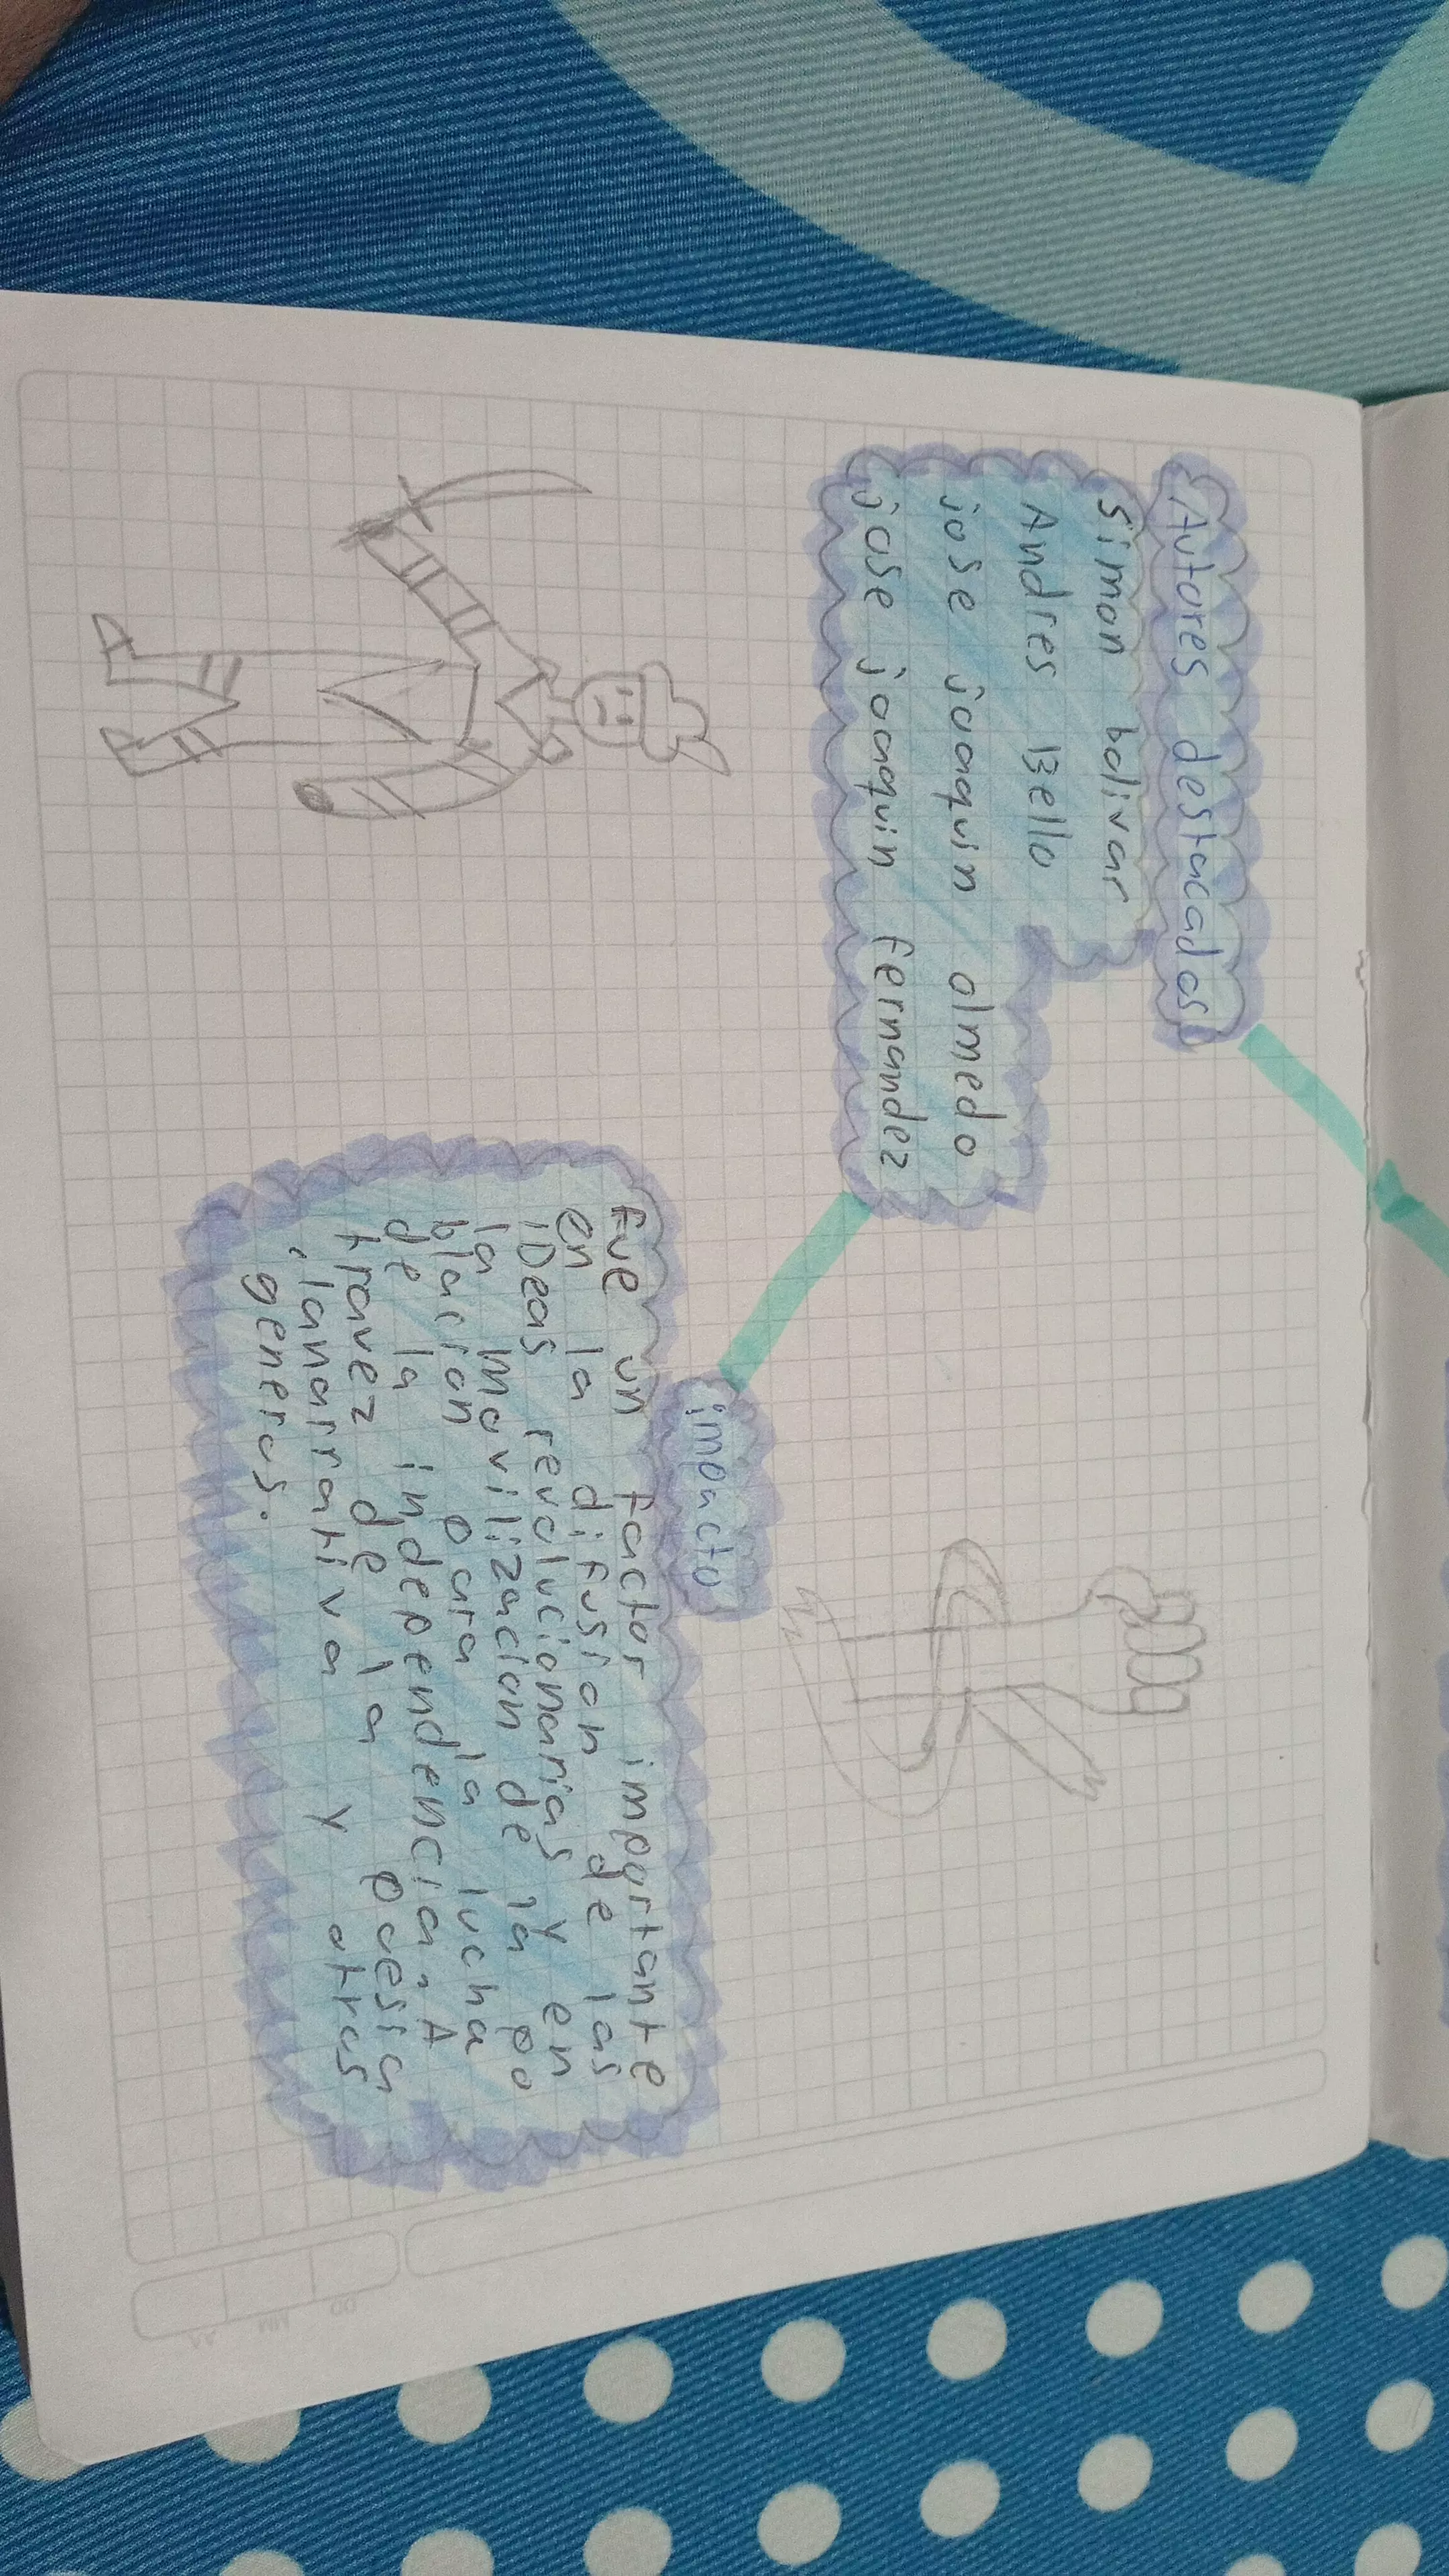 Autores destacados
Simon bolivar
Andres Bello
jose juaquin olmedo
jose joaquin fernandez
impacto
Fue un factor importante
en la difusion de las
iDeas revolucionarias y en
la movilizacion de la po
blacion para la lucha
de la independencia, A
travez de la poesia
, la narrativa y otros
generos.
DD MM AA